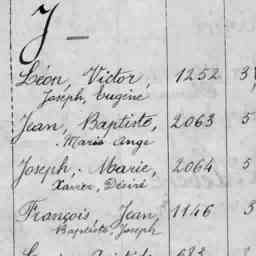 J —
Léon, Victor, 1252 3
Joseph, Eugène
Jean, Baptiste, 2063 5
Marie Ange
Joseph, Marie, 2064 5
Xavier, Désiré
François, Jean, 1146 3
Baptiste, Joseph